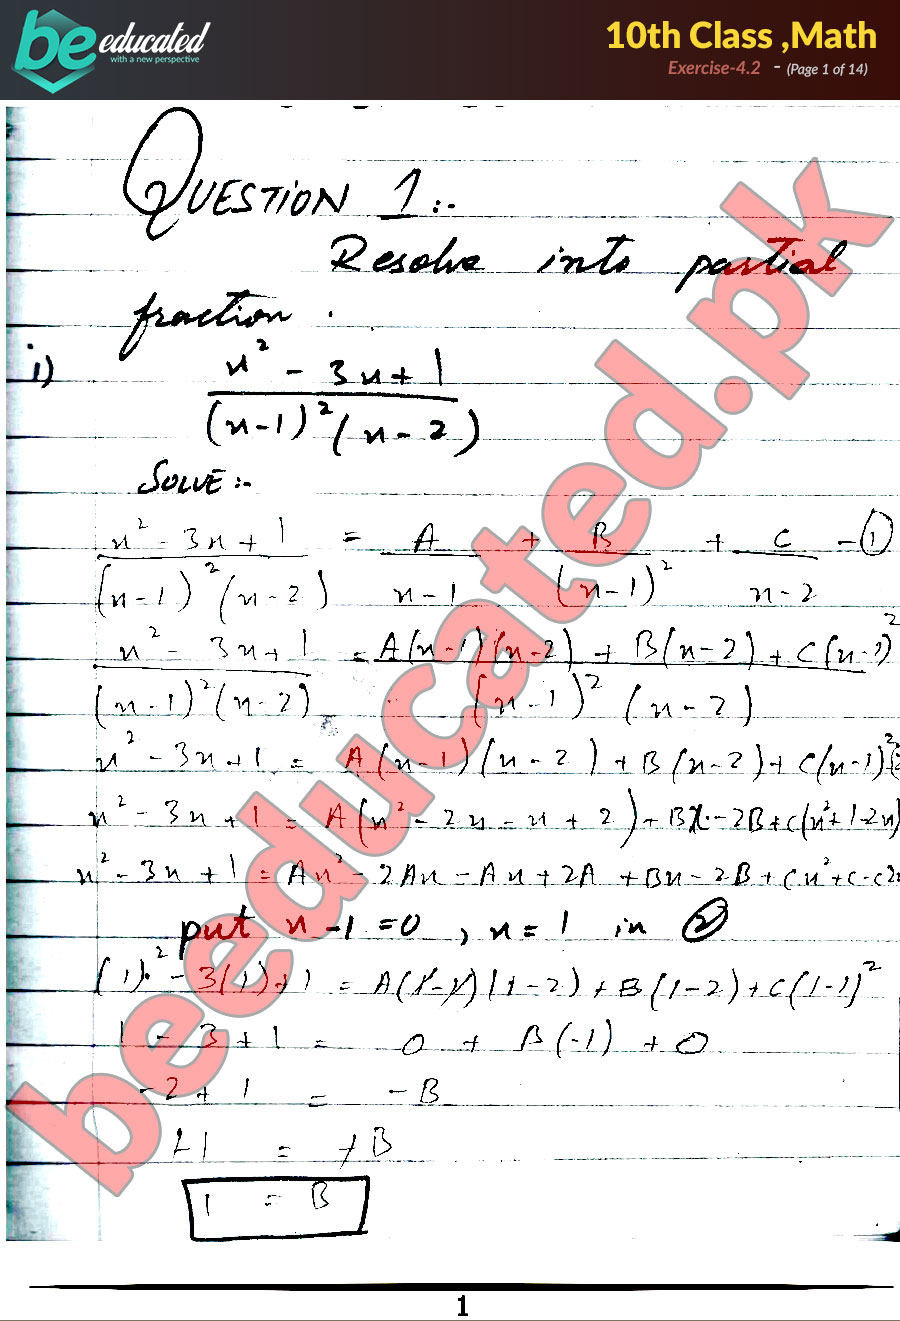 be educated
with a new perspective
10th Class ,Math
Exercise-4.2 - (Page 1 of 14)
QUESTION 1:-
Resolve into partial
fraction .
i) x² - 3x + 1
(x-1)² (x-2)
SOLVE :-
x² - 3x + 1 = A + B + C - ①
(x-1)² (x-2) x-1 (x-1)² x-2
x² - 3x + 1 = A(x-1)(x-2) + B(x-2) + C(x-1)²
(x-1)² (x-2) (x-1)² (x-2)
x² - 3x + 1 = A(x-1)(x-2) + B(x-2) + C(x-1)²
x² - 3x + 1 = A(x² - 2x - x + 2) + Bx - 2B + C(x² + 1 - 2x)
x² - 3x + 1 = Ax² - 2Ax - Ax + 2A + Bx - 2B + Cx² + C - C2x
put x - 1 = 0 , x = 1 in ②
(1)² - 3(1) + 1 = A(1-1)(1-2) + B(1-2) + C(1-1)²
1 - 3 + 1 = 0 + B(-1) + 0
-2 + 1 = -B
-1 = -B
1 = B
beeducated.pk
1